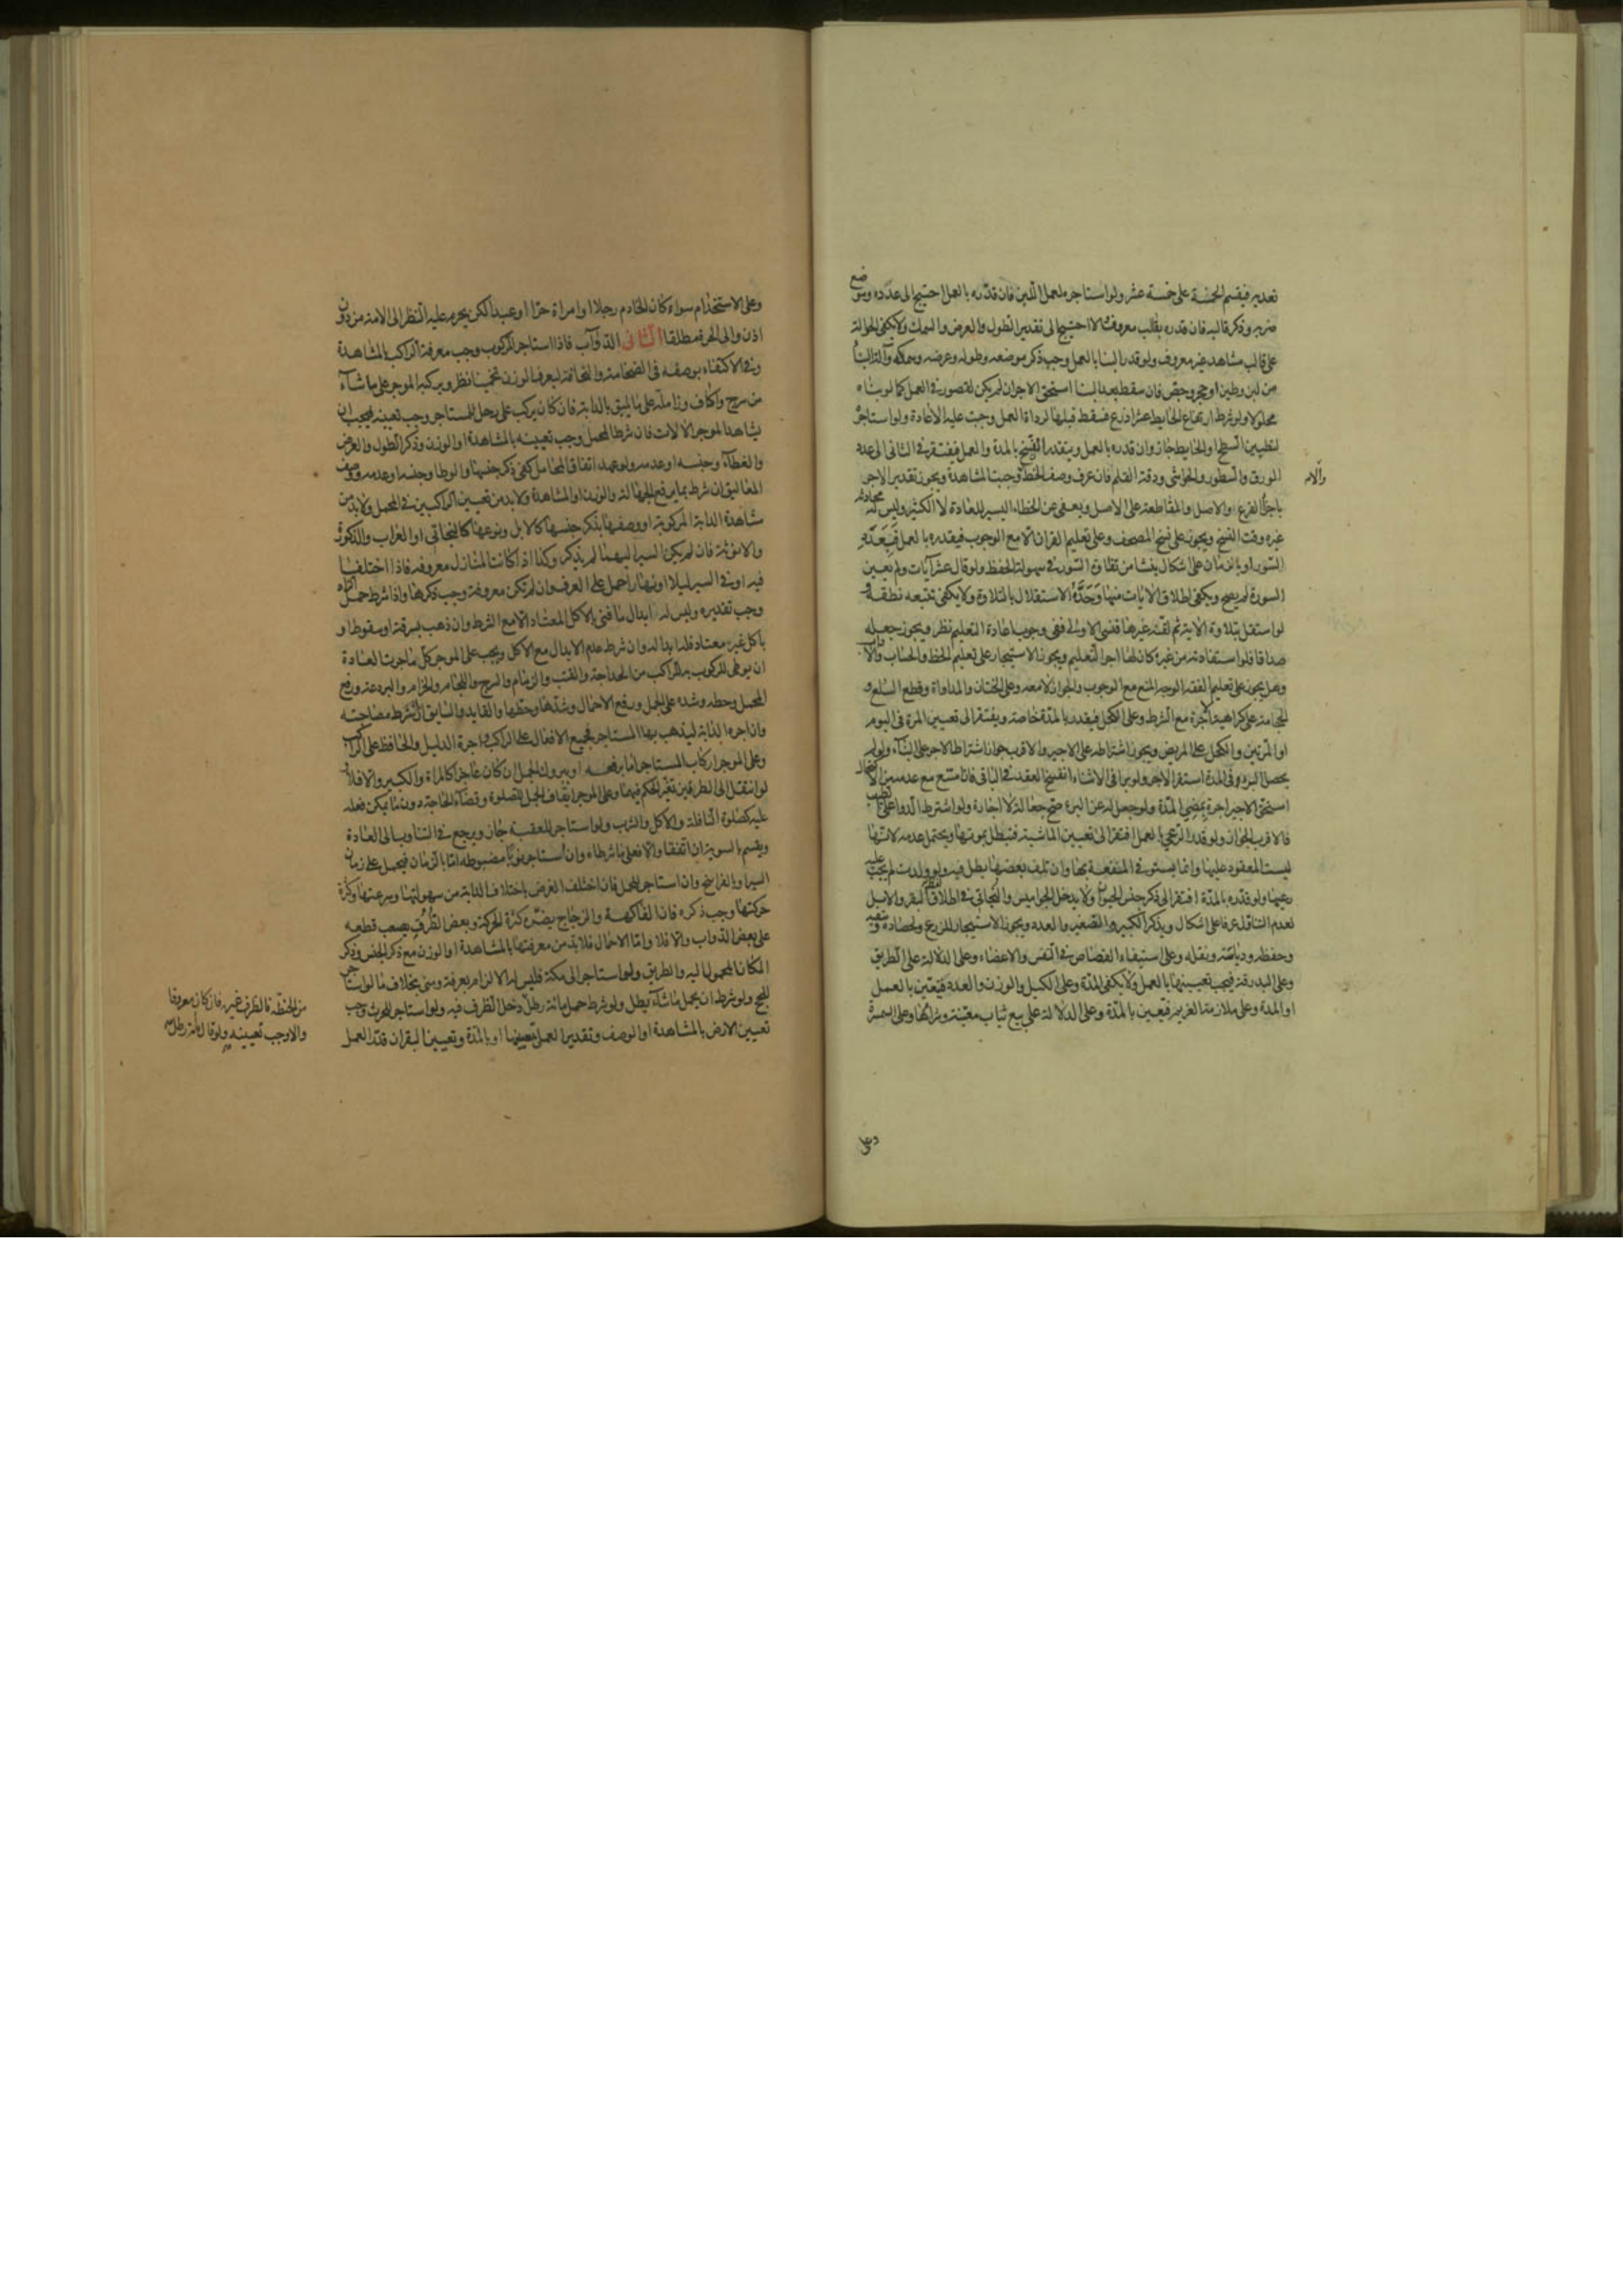 تعذير فيقسم الخمسة على خمسة عشر ولو استاجره لعمل اللبن فان قدره بالعمل احتيج الى عدده وموضع
ضربه وذكر قالبه فان قدره بقالب معروف والا احتيج الى تقدير الطول والعرض والسمك ولا يكفى الحوالة
على قالب مشاهد غير معروف ولو قدر البنا بالعمل وجب ذكر موضعه وطوله وعرضه وسمكه وآلة البنا
من لبن وطين او حجر وجص فان سقط بعد البنا استحق الاجر ان لم يكن لقصور فى العمل كما لو بناه
محلولا ولو شرط ارتفاع الحايط عشر اذرع فسقط قبلها لرداة العمل وجبت عليه الاعادة ولو استاجر
لتطيين السطح او الحايط جاز وان قدره بالعمل ويتقدر النسخ بالمدة والعمل فيفتقر فى الثانى الى عدد
الورق والسطور والحواشى ودقة القلم فان عرف وصف الخط والا وجبت المشاهدة ويجوز تقدير الاجر
باجزآء الفرع او الاصل والمقاطعة على الاصل ويعفى عن الخطاء اليسير للعادة لا الكثير وليس له محادثة
غيره وقت النسخ ويجوز على نسخ المصحف وعلى تعليم القران الا مع الوجوب فيقدره بالعمل فيعدّد
السور او بالزمان على اشكال ينشا من تفاوت السور فى سهولة الحفظ ولو قال عشر آيات ولم يعين
السورة لم يصح ويكفى اطلاق الايات منها وحدّه الاستقلال بالتلاوة ولا يكفى تتبعه نطقه فـ
لو استقل بتلاوة الاية ثم لقنه غيرها فنسى الاولى ففى وجوب اعادة التعليم نظر ويجوز جعله
صداقا فلو استفادته من غيره كان لها اجر التعليم ويجوز الاستيجار على تعليم الخط والحساب والآداب
وهل يجوز على تعليم الفقه الوجه المنع مع الوجوب والجواز لا معه وعلى الختان والمداواة وقطع السلع و
الحجامة على كراهية الاجرة مع الشرط وعلى الكحل فيقدر بالمدة خاصة ويفتقر الى تعيين المرة فى اليوم
او المرتين والكحل على المريض ويجوز اشتراطه على الاجير والاقرب جواز اشتراط الاجر على البرء ولو لم
يحصل البرء فى المدة استقر الاجر ولو برا فى الاثناء انفسخ العقد فى الباقى فان امتنع مع عدمه من الاكتحال
استحق الاجير اجرة بمضى المدة ولو جعل له عن البرء صح جعالة لا اجارة ولو اشترط الدوا على الطبيب
فالاقرب الجواز ولو قدر الرعى بالعمل افتقر الى تعيين الماشية فتبطل بموتها ويحتمل عدمه لانها
ليست المعقود عليها وانما يستوفى المنفعة بها وان تلف بعضها بطل فيه ولو ولدت لم يجب عليه
رعيها ولو قدره بالمدة افتقر الى ذكر جنس الحيوان ولا يدخل الجواميس والبخاتى فى اطلاق لفظ البقر والابل
لعدم التناول عرفا على اشكال ويذكر الكبير والصغير والعدد ويجوز الاستيجار للزرع ولحصاده وسقيه
وحفظه ودياسته ونقله وعلى استيفاء القصاص فى النفس والاعضاء وعلى الدلالة على الطريق
وعلى البدرقة فيجب تعيينها بالعمل ولا يكفى المدة وعلى الكيل والوزن والعدد فيتعين بالعمل
او المدة وعلى ملازمة الغريم فيتعين بالمدة وعلى الدلالة على بيع ثياب معينة وشرائها وعلى السمسرة
والام
وعلى
وعلى الاستخدام سواء كان الخادم رجلا او امراة حرا او عبدا لكن يحرم عليه النظر الى الامة من دون
اذن والى الحرة مطلقا الثانى الدوآب فاذا استاجر للركوب وجب معرفة الراكب بالمشاهدة
وفى الاكتفاء بوصفه فى الضخامة والنحافة ليعرف الوزن تخمينا نظر ويركبه الموجر على ما شآء
من سرج واكاف وزاملة على ما يليق بالدابة فان كان يركب على رحل للمستاجر وجب تعيينه فيجب ان
يشاهد الموجر الالات فان شرط المحمل وجب تعيينه بالمشاهدة او الوزن وذكر الطول والعرض
والغطآء وجنسه او عدمه ولو عهد اتفاق المحامل كفى ذكر جنسها والوطا وجنسه او عدمه ووصف
المعاليق ان شرط بما يرفع الجهالة والوزن او المشاهدة ولا بد من تعيين الراكبين فى المحمل ولا بد من
مشاهدة الدابة المركوبة او وصفها بذكر جنسها كالابل ونوعها كالبخاتى او العراب والذكورة
والانوثة فان لم يكن السير اليهما لم يذكر وكذا اذا كانت المنازل معروفة فاذا اختلفا
فيه او فى السير ليلا او نهارا حمل على العرف وان لم تكن معروفة وجب ذكرها واذا شرط حمل الزاد
وجب تقديره وليس له ابدال ما فنى بالاكل المعتاد الا مع الشرط وان ذهب بسرقة او سقوط او
باكل غير معتاد فله ابداله وان شرط عدم الابدال مع الاكل ويجب على الموجر كل ما جرت العادة
ان يوطى للركوب به للراكب من الحداجة والقتب والزمام والسرج واللجام والحزام والبردعة ورفع
المحمل وحطه وشده على الجمل ورفع الاحمال وشدها وحطها والقايد والسايق ان شرط مصاحبته
وان اجره الدابة ليذهب بها المستاجر فجميع الافعال على الراكب واجرة الدليل والحافظ على الراكب
وعلى الموجر اركاب المستاجر اما برفعه او ببروك الجمل ان كان عاجزا كالمراة والكبير والا فلا
لو انتقل الى الطرفين تغير الحكم فيهما وعلى الموجر ايقاف الجمل للصلوة وقضآء الحاجة دون ما يمكن فعله
عليه كصلوة النافلة والاكل والشرب ولو استاجر للعقبة جاز ويرجع فى التناوب الى العادة
ويقسم بالسوية ان اتفقا والا فعلى ما شرطاه وان استاجر نوبا مضبوطه اما بالزمان فيحمل على زمان
السير او بالفراسخ وان استاجر للحمل فان اختلف الغرض باختلاف الدابة من سهولتها وسرعتها وكثرة
حركتها وجب ذكره فان الفاكهة والزجاج يضره كثرة الحركة وبعض الطرق يصعب قطعه
على بعض الدواب والا فلا واما الاحمال فلا بد من معرفتها بالمشاهدة او الوزن مع ذكر الجنس وذكر
المكان المحمول اليه والطريق ولو استاجر الى مكة فليس له الالزام بعرفة ومنى بخلاف ما لو استاجر
للحج ولو شرط ان يحمل ما شآء بطل ولو شرط حمل مائة رطل دخل الظرف فيه ولو استاجر للحرث وجب
تعيين الارض بالمشاهدة او الوصف وتقدير العمل بتعيينها او بالمدة وتعيين البقر ان قدر العمل
من الحنطة فالظرف غيره فان كان معروفا
والا وجب تعيينه ولو قال مائة رطل